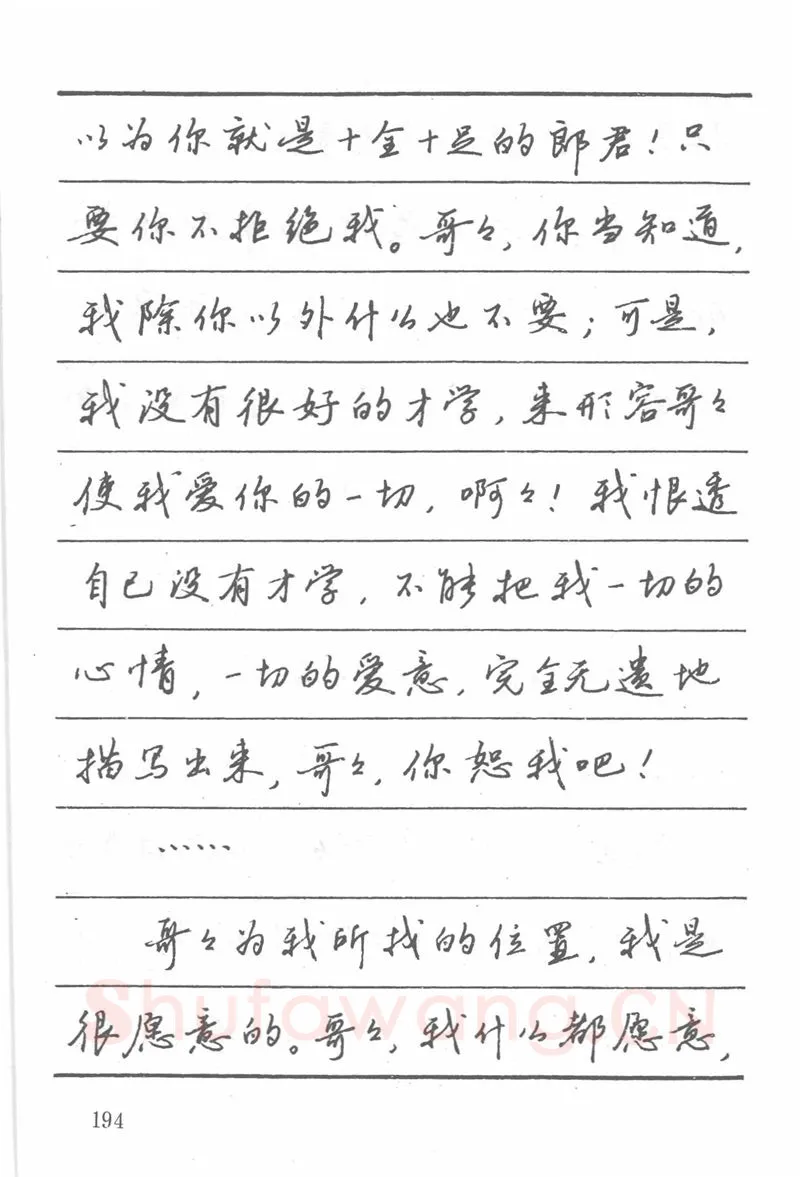 以为你就是十全十足的郎君！只
要你不拒绝我。哥々，你当知道，
我除你以外什么也不要；可是，
我没有很好的才学，来形容哥々
使我爱你的一切，啊々！我恨透
自已没有才学，不能把我一切的
心情，一切的爱意，完全无遗地
描写出来，哥々，你恕我吧！
……
哥々为我所找的位置，我是
很愿意的。哥々，我什么都愿意，
Shufawang.CN
194